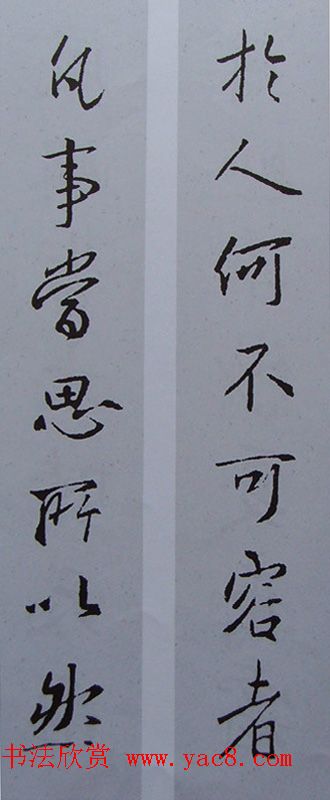 於人何不可容者
凡事當思所以然
书法欣赏 www.yac8.com